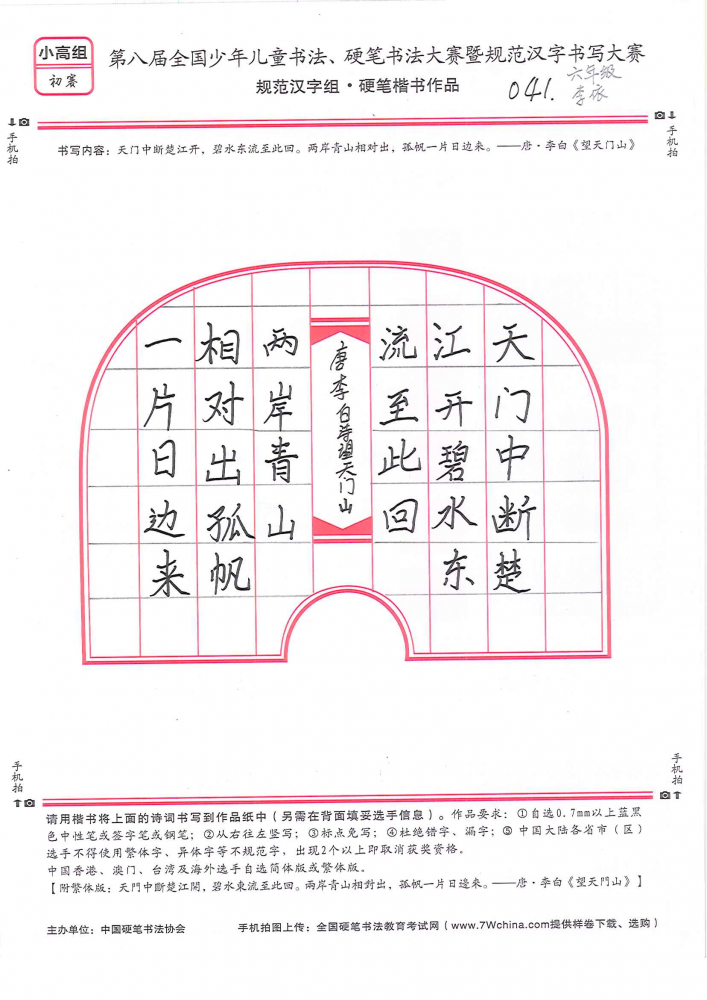 小高组
初赛
第八届全国少年儿童书法、硬笔书法大赛暨规范汉字书写大赛
规范汉字组·硬笔楷书作品
041.
六年级
李依
手机拍
手机拍
书写内容：天门中断楚江开，碧水东流至此回。两岸青山相对出，孤帆一片日边来。——唐·李白《望天门山》
天门中断楚
江开碧水东
流至此回
唐李白诗望天门山
两岸青山
相对出孤帆
一片日边来
手机拍
手机拍
请用楷书将上面的诗词书写到作品纸中（另需在背面填妥选手信息）。作品要求：①自选0.7mm以上蓝黑
色中性笔或签字笔或钢笔；②从右往左竖写；③标点免写；④杜绝错字、漏字；⑤中国大陆各省市（区）
选手不得使用繁体字、异体字等不规范字，出现2个以上即取消获奖资格。
中国香港、澳门、台湾及海外选手自选简体版或繁体版。
【附繁体版：天門中斷楚江開，碧水東流至此回。两岸青山相對出，孤帆一片日邊來。——唐·李白《望天門山》】
主办单位：中国硬笔书法协会
手机拍图上传：全国硬笔书法教育考试网（www.7Wchina.com提供样卷下载、选购）